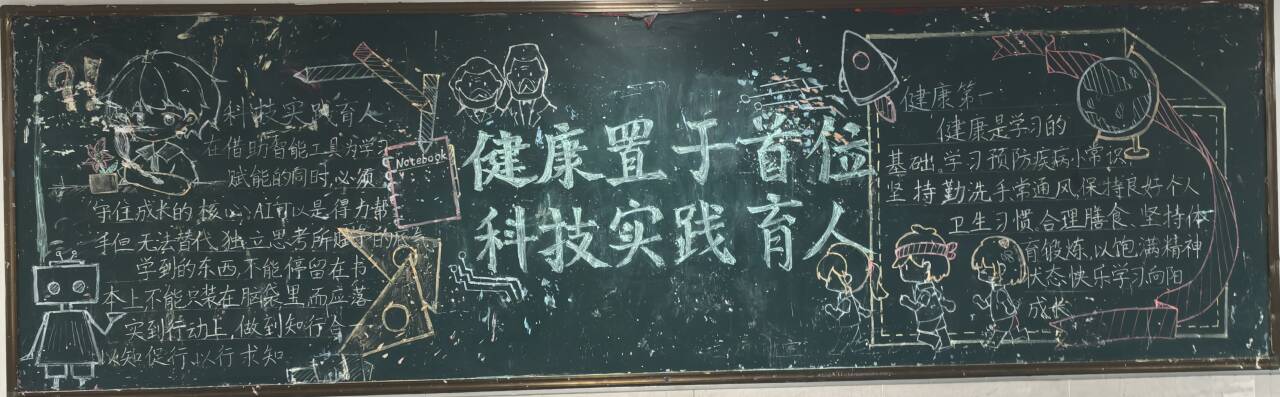 科技实践育人
在借助智能工具为学习
赋能的同时,必须
守住成长的核心,AI可以是得力帮
手但无法替代独立思考所
学到的东西,不能停留在书
本上不能只装在脑袋里,而应落
实到行动上,做到知行合一
以知促行,以行求知
Notebook
健康置于首位
科技实践育人
健康第一
健康是学习的
基础。学习预防疾病小常识
坚持勤洗手常通风,保持良好个人
卫生习惯合理膳食、坚持体
育锻炼,以饱满精神
状态快乐学习向阳
成长